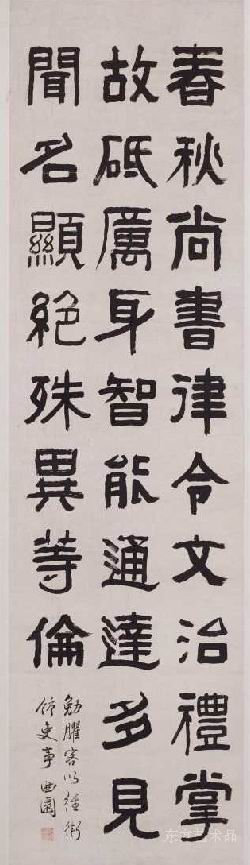 春秋尚書律令文治禮掌
故砥厲身智能通達多見
聞名顯絶殊異等倫
勉臞客以經術
飾吏事 曲園